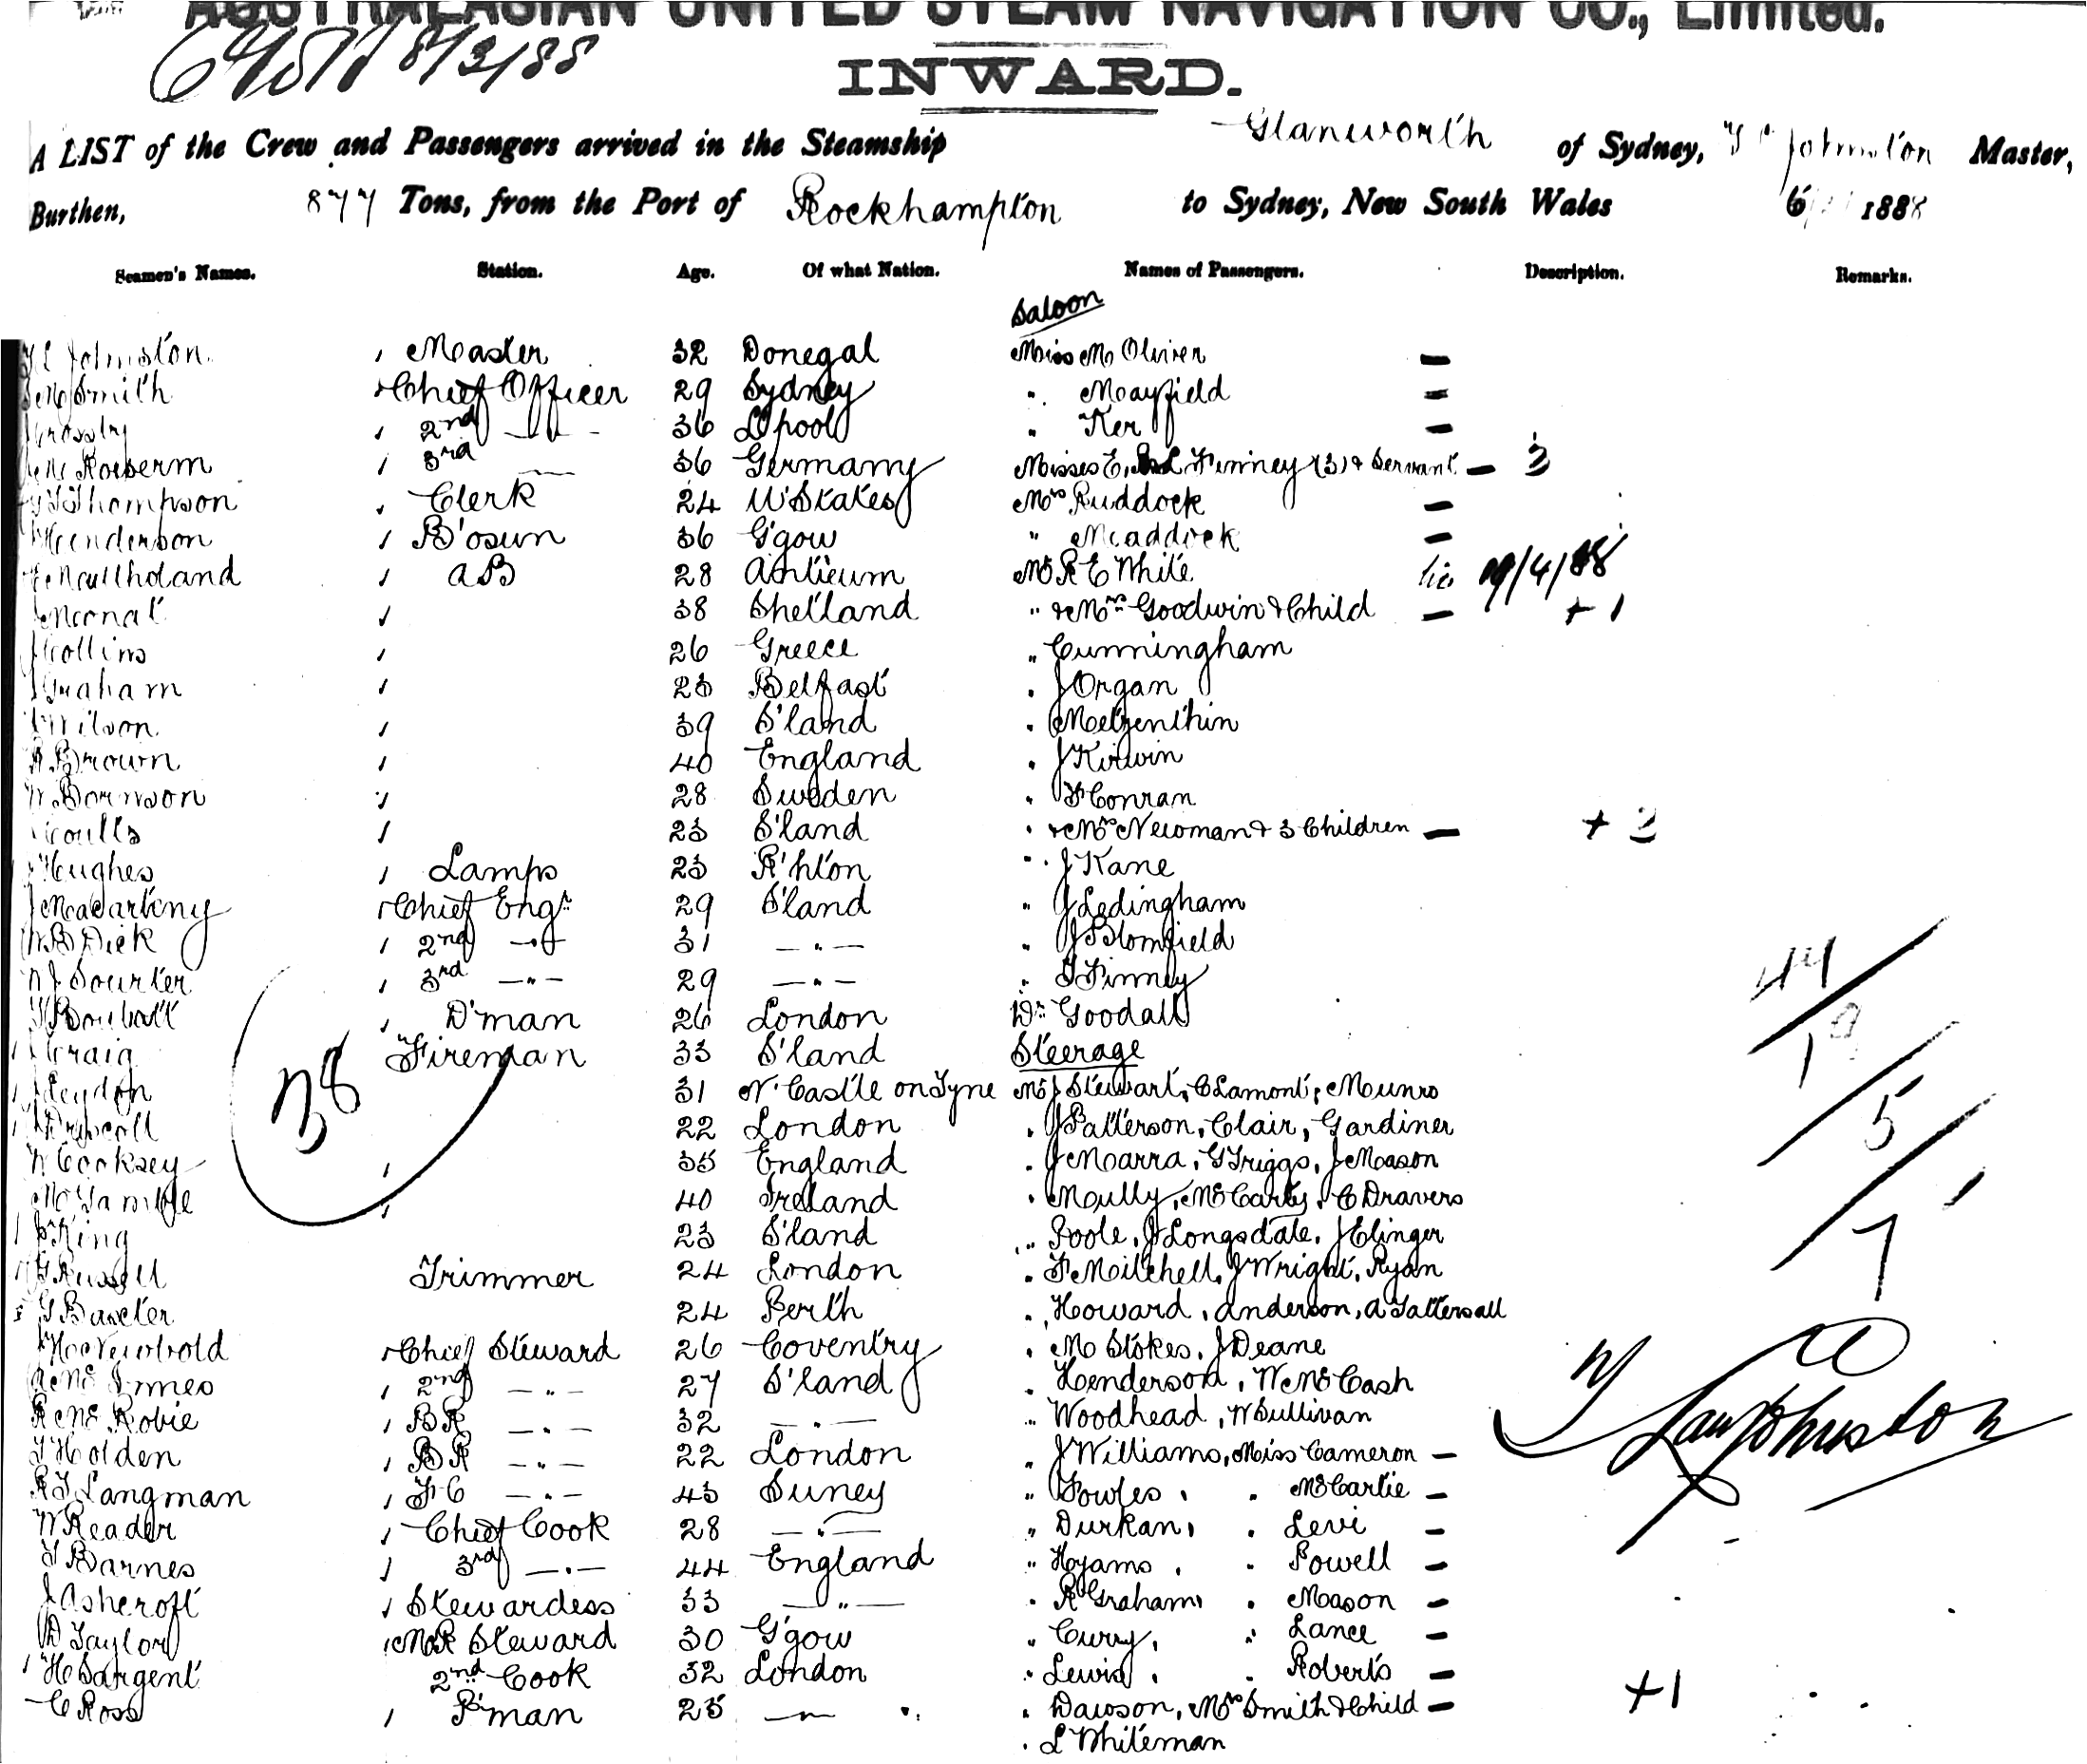 AUSTRALASIAN UNITED STEAM NAVIGATION CO., Limited.
8/3/88
INWARD.
A LIST of the Crew and Passengers arrived in the Steamship Glanworth of Sydney, Johnston Master,
Burthen, 877 Tons, from the Port of Rockhampton to Sydney, New South Wales 6 1888
Seamen's Names. Station. Age. Of what Nation. Names of Passengers. Description. Remarks.
Saloon
Johnston Master 32 Donegal Miss M Oliver —
Smith Chief Officer 29 Sydney " Mayfield —
Crossley 2nd — " — 36 L'pool " Ker —
3rd — 36 Germany Misses E, Finney (3) & Servant — 3
Thompson Clerk 24 U States Mrs Ruddock —
Henderson B'osun 36 G'gow " Maddock —
Mullholand AB 28 Mr R E White 19/4/88
38 Shetland " & Mrs Goodwin & Child — + 1
J Collins 26 Greece " Cunningham
J Graham 23 Belfast " J Organ
Wilson 39 S'land " Metzenthin
Brown 40 England " J Kirwin
28 Sweden " F Conran
Coulls 23 S'land " & Mrs Newman & 3 Children — + 3
Hughes Lamps 23 R'hton " J Kane
J Macartney Chief Engr 29 S'land " J Ledingham
W B Dick 2nd — " — 31 — " — " J Blomfield
W J 3rd — " — 29 — " — " T Finney
D'man 26 London Dr Goodall
Craig Fireman 33 S'land Steerage
Leydon 31 N'Castle on Tyne Mr J Stewart, C Lamont, Munro
Driscoll 22 London " J Patterson, Clair, Gardiner
W Cooksey 35 England " J Marra, G Griggs, J Mason
Gamble 40 Ireland " Mully, McCarty, C Dravers
King 23 S'land " Poole, J Longsdale, J Elinger
Russell Trimmer 24 London " F Mitchell, J Wright, Ryan
G Baxter 24 Perth " Howard, Anderson, A Tattersall
Chief Steward 26 Coventry " M Stokes, J Deane
Innes 2nd — " — 27 S'land " Henderson, W McCash
R Mc Robie BR — " — 32 — " — " Woodhead, W Sullivan
T Holden BR — " — 22 London " J Williams, Miss Cameron —
R T Langman FC — " — 43 Surrey " Fowles, " McCartie —
W Reader Chief Cook 28 — " — " Durkan, " Levi —
T Barnes 3rd — " — 44 England " Hyams, " Powell —
J Ashcroft Stewardess 33 — " — " R Graham, " Mason —
D Taylor Steward 30 G'gow " Curry, " Lance —
H Sargent 2nd Cook 32 London " Lewis, " Roberts —
C Ross P'man 25 — " — " Dawson, Mrs Smith & Child — +1
" L Whiteman
38
44
5
1
7
Johnston